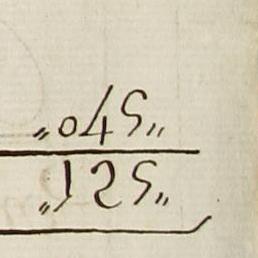 „045„
„125„